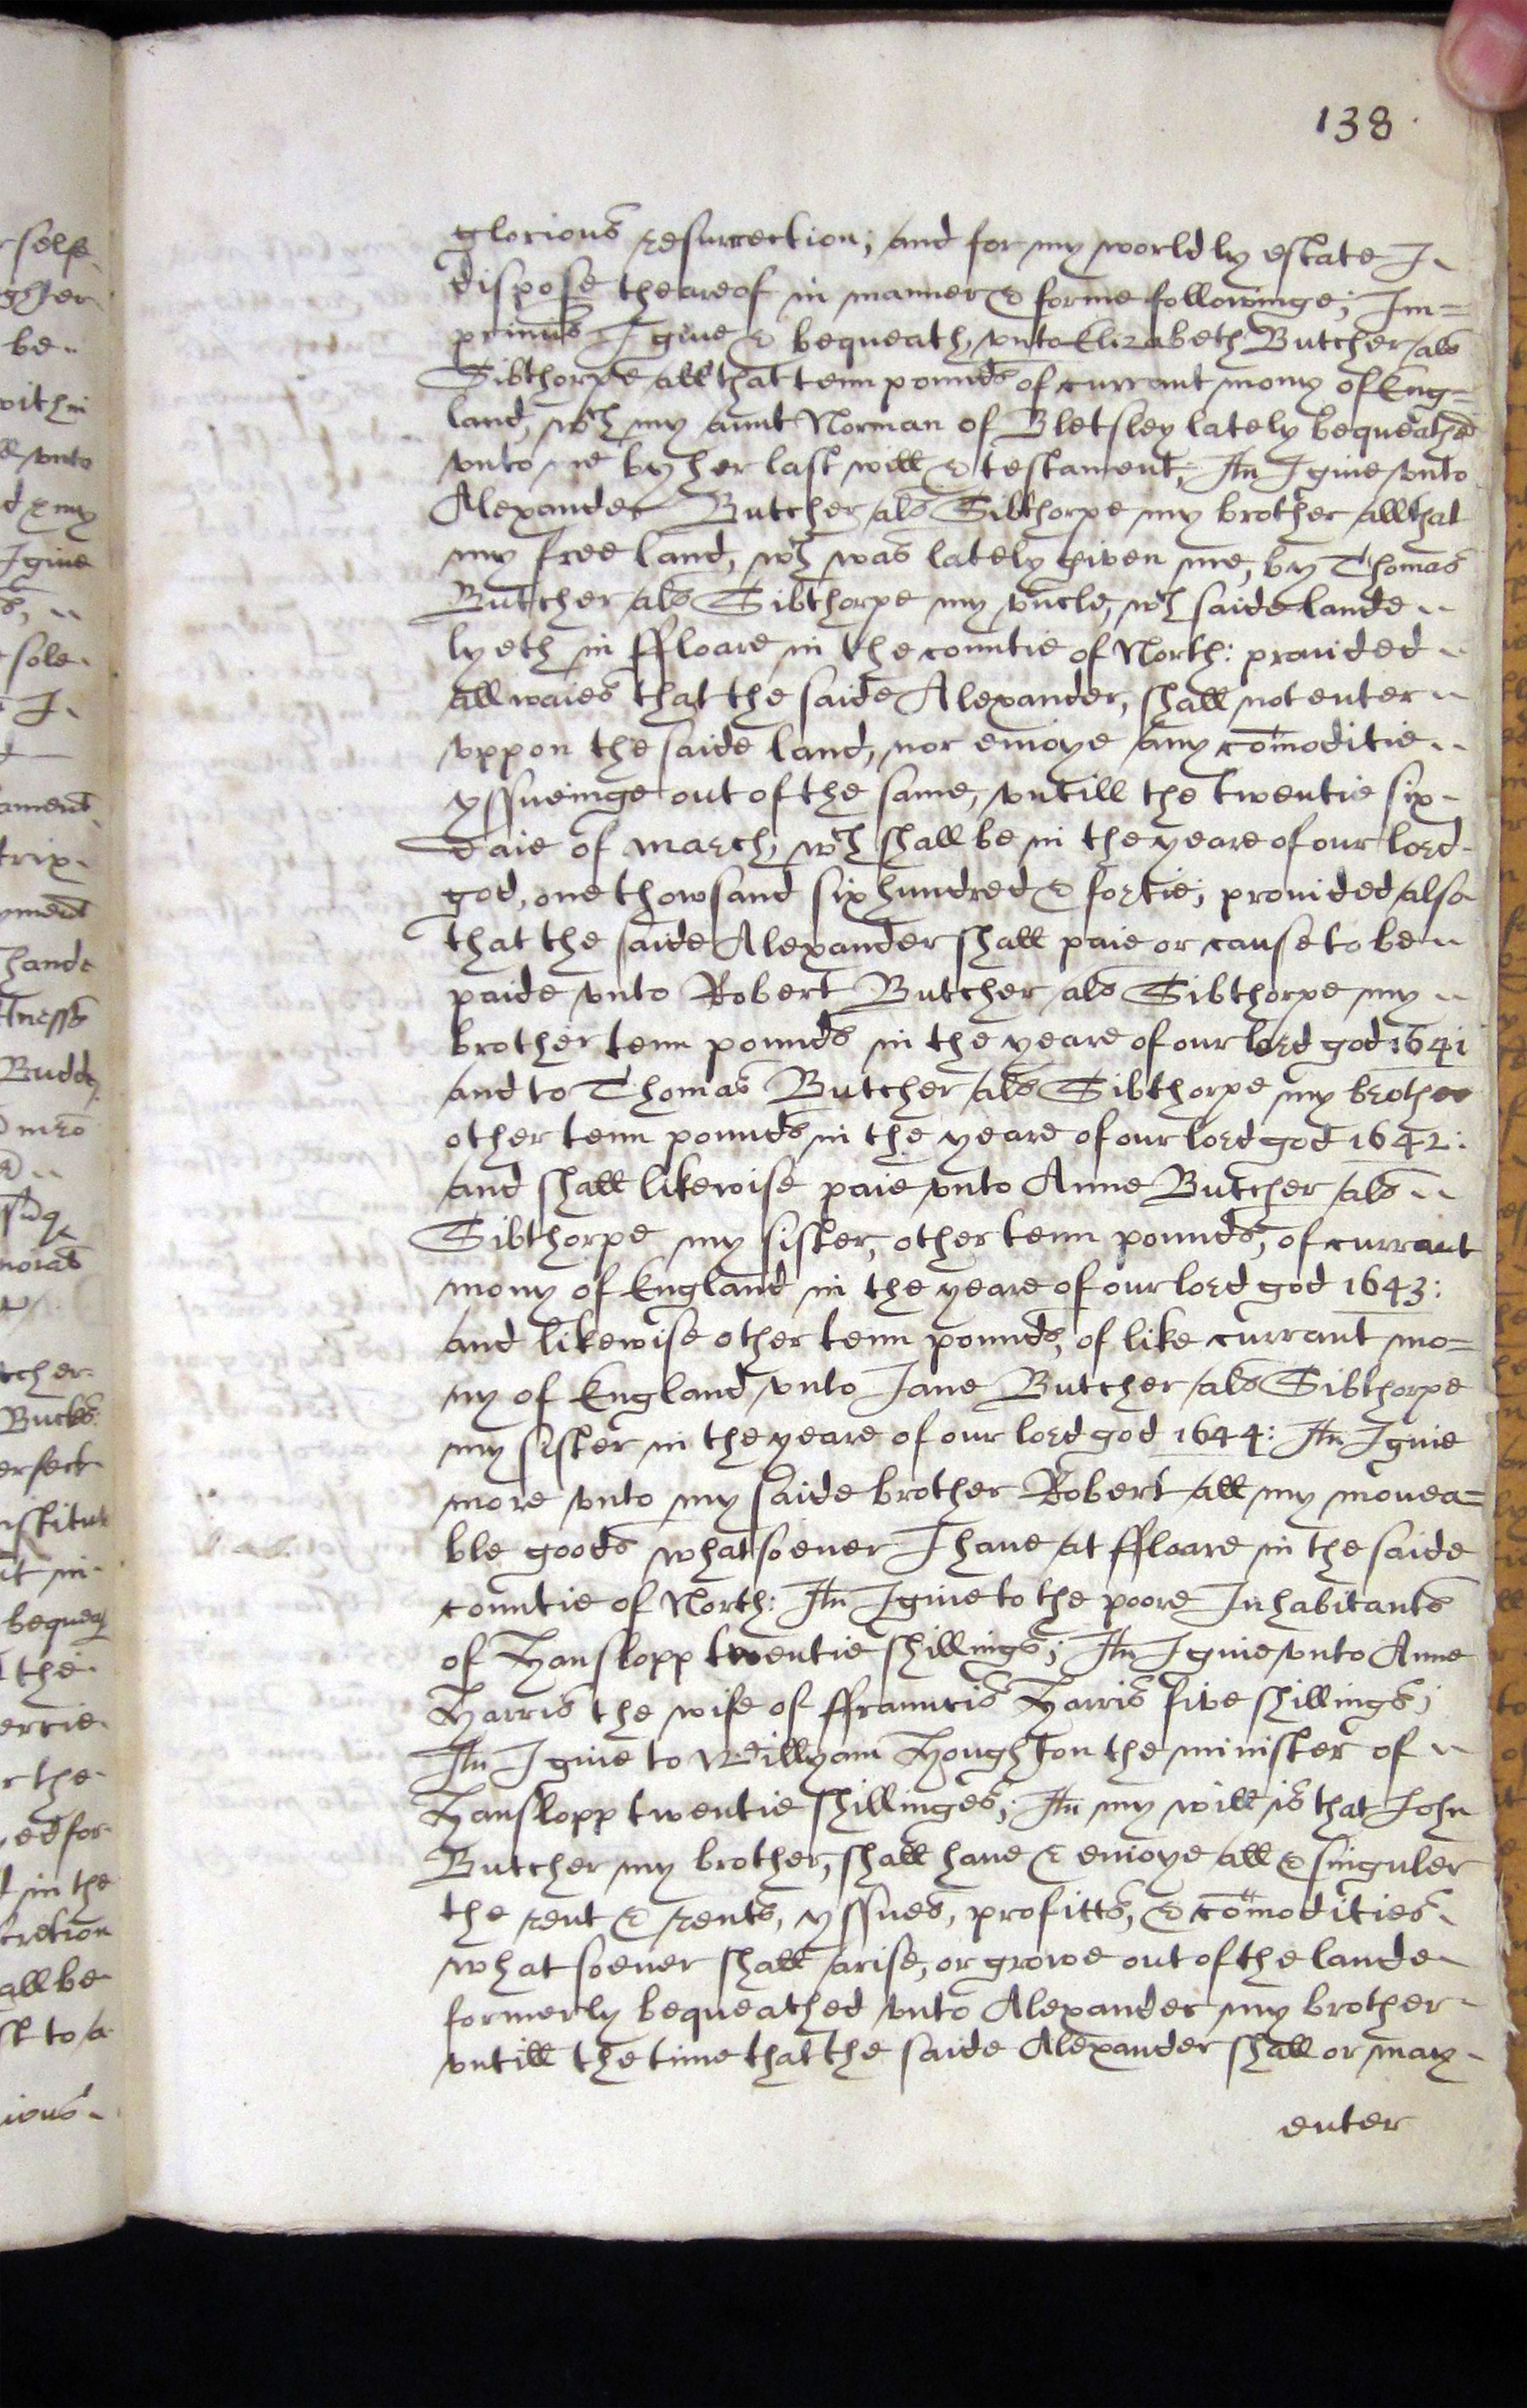 138
glorious resurrection; and for my worldly estate I
dispose theareof in manner & forme followinge; Im=
primis I giue & bequeath, vnto Elizabeth Butcher als
Sibthorpe all that tenn pounds of currant mony of Eng=
land, wch my aunt Norman of Bletsley lately bequeathed
vnto me by her last will & testament; Itm I giue vnto
Alexander Butcher als Sibthorpe my brother all that
my free land, wch was lately given me, by Thomas
Butcher als Sibthorpe my vncle, wch saide lande
lyeth in ffloare in the countie of North: prouided
allwaies that the saide Alexander, shall not enter
vppon the saide land, nor enioye any comoditie
yssueinge out of the same, vntill the twentie six
daie of march, wch shall be in the yeare of our lord
god, one thowsand six hundred & fortie; prouided also
that the saide Alexander shall paie or cause to be
paide vnto Robert Butcher als Sibthorpe my
brother tenn pounds in the yeare of our lord god 1641
and to Thomas Butcher als Sibthorpe my brother
other tenn pounds in the yeare of our lord god 1642:
and shall likewise paie vnto Anne Butcher als
Sibthorpe my sister, other tenn pounds, of currant
mony of England in the yeare of our lord god 1643:
and likewise other tenn pounds, of like currant mo=
ny of England vnto Jane Butcher als Sibthorpe
my sister in the yeare of our lord god 1644: Itm I giue
more vnto my saide brother Robert all my mouea=
ble goods whatsoeuer I haue at ffloare in the saide
countie of North: Itm I giue to the poore Inhabitants
of Hanslopp twentie shillings; Itm I giue vnto Anne
Harris the wife of ffrauncis Harris five shillings;
Itm I giue to Willyam Houghton the minister of
Hanslopp twentie shillinges; Itm my will is that John
Butcher my brother, shall haue & enioye all & singuler
the rent & rents, yssues, profitts, & comodities
whatsoeuer shall arise, or growe out of the lande
formerly bequeathed vnto Alexander my brother
vntill the time that the saide Alexander shall or may
enter